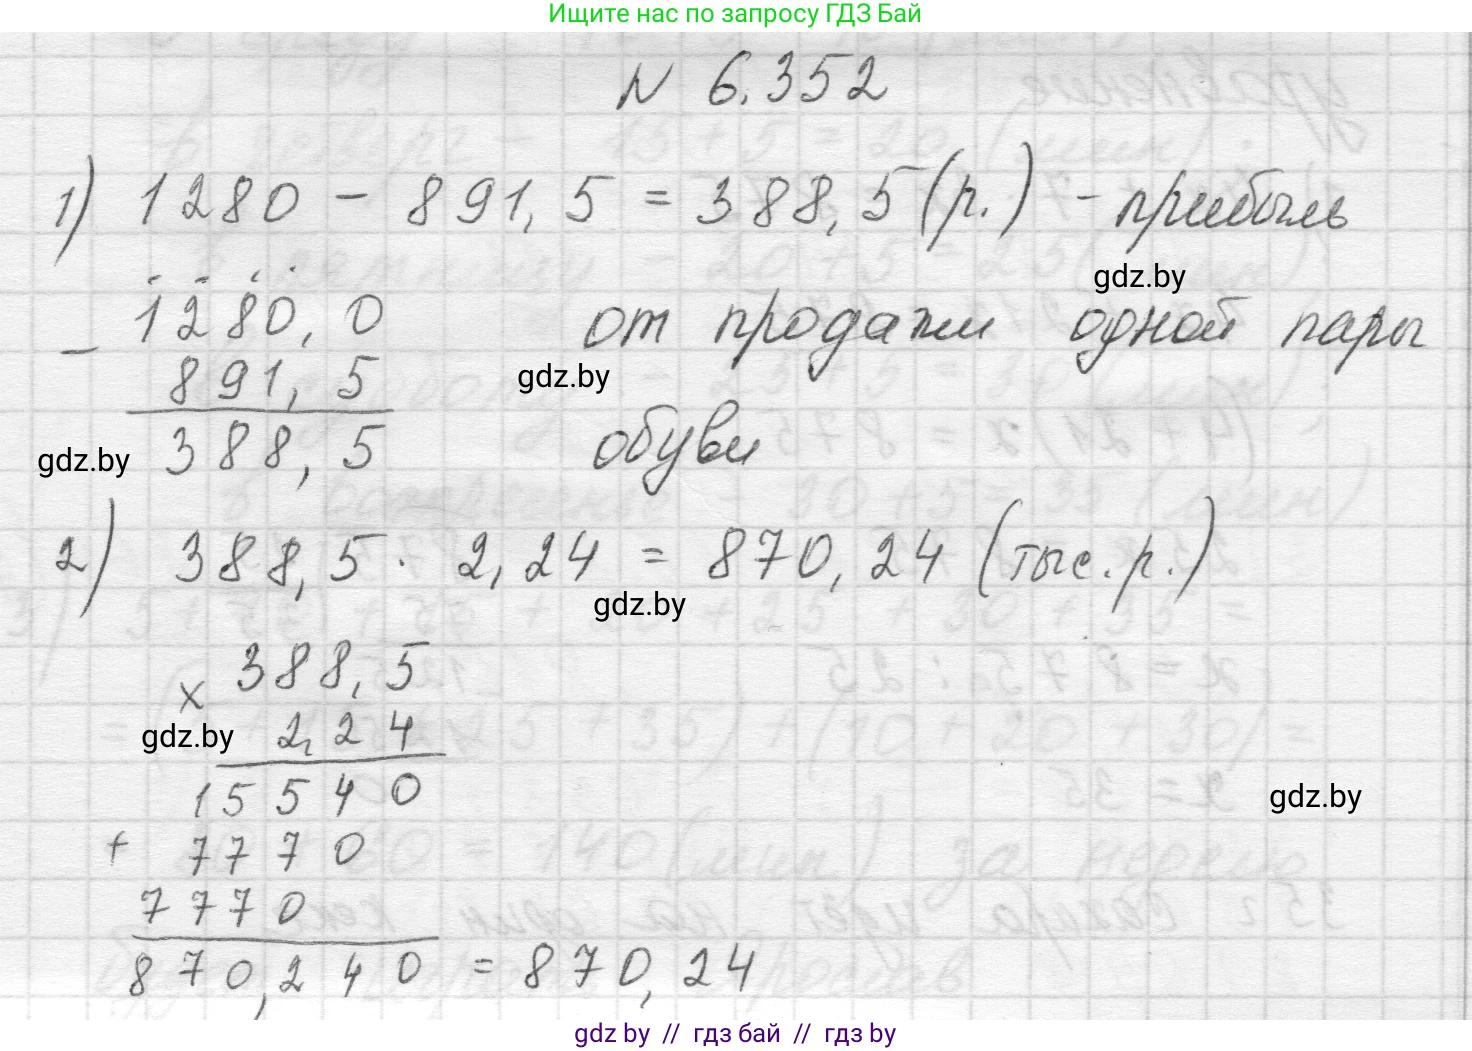 Ищите нас по запросу ГДЗ Бай
N 6.352
1) 1280 - 891,5 = 388,5 (р.) - прибыль
gdz.by
1280,0 от продажи одной пары
-
891,5 gdz.by
gdz.by 388,5 обуви
2) 388,5 · 2,24 = 870,24 (тыс.р.)
gdz.by
x 388,5
gdz.by 2,24
15540
gdz.by
+ 7770
7770
870,240 = 870,24
gdz by // гдз бай // гдз by